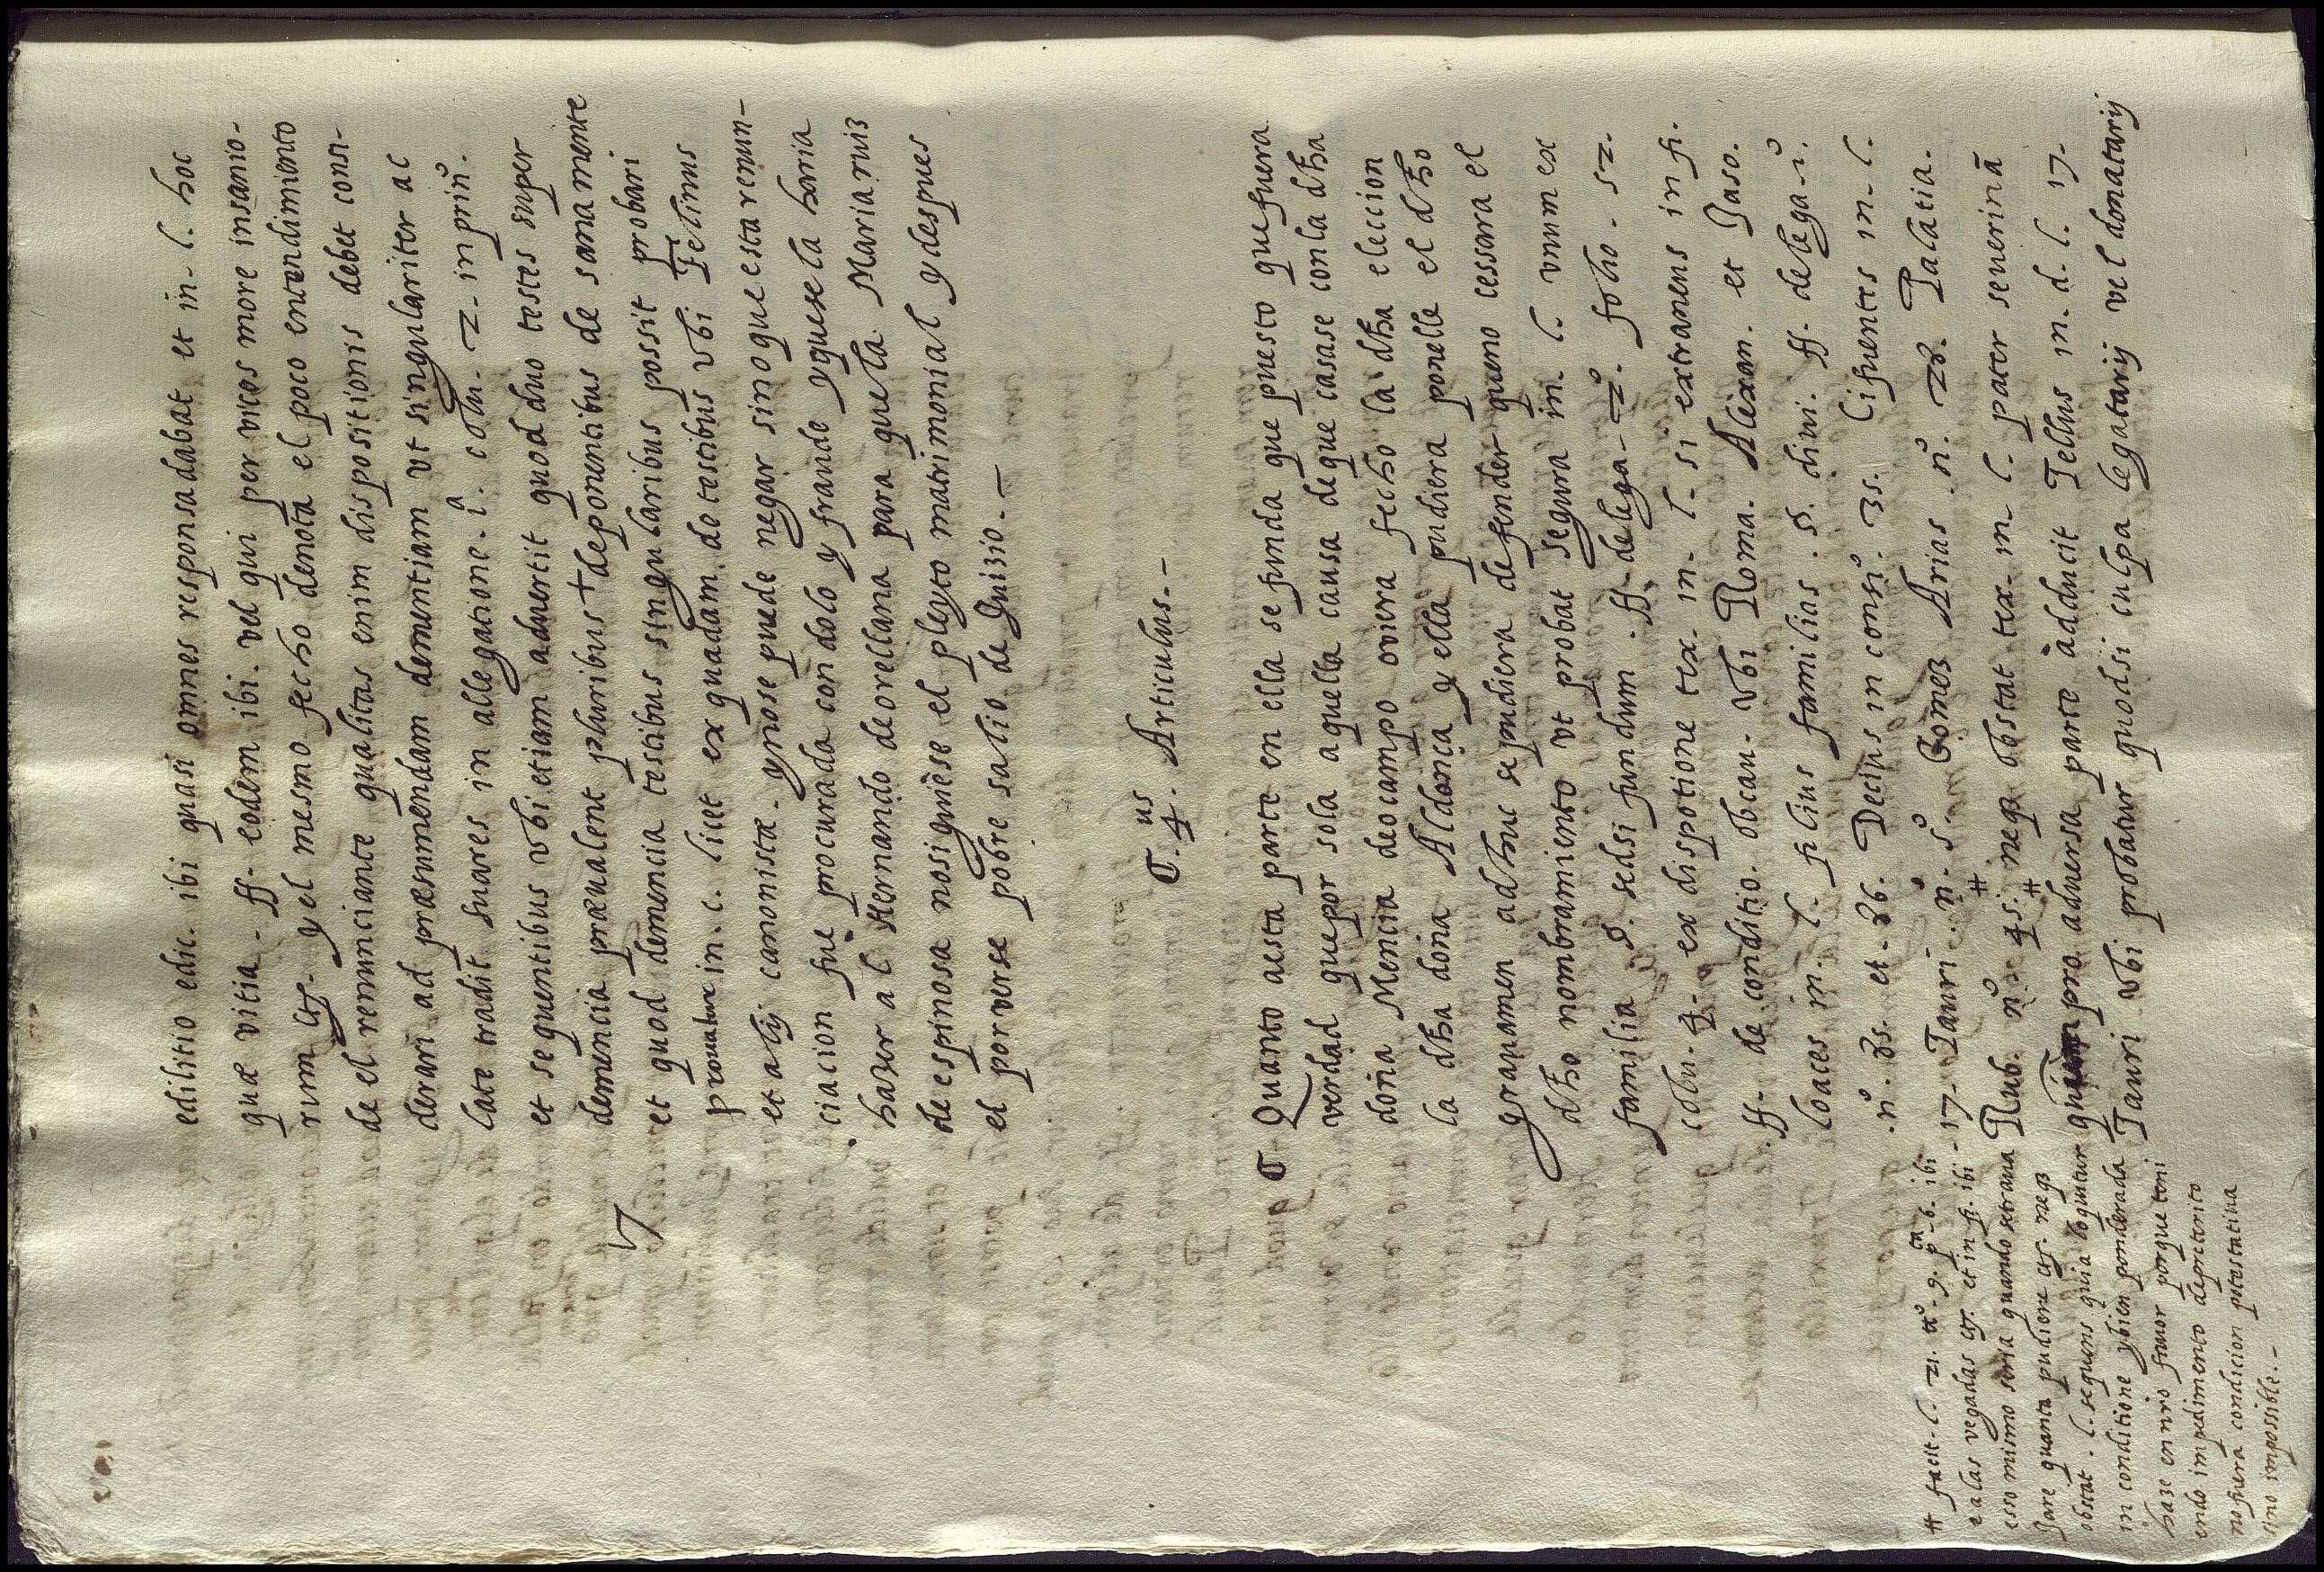 edilitio edic. ibi quasi omnes responsadabat et in. l. hoc
quæ vitia. ff. eodem ibi. vel qui per vices more insanio-
rum &. y el mesmo fecho denota el poco entendimiento
de el renunciante qualitas enim dispositionis debet consi-
derari ad præsumendam dementiam ut singulariter ac
late tradit suares in allegatione. 1ª. colu. 2. in prinº.
et sequentibus ubi etiam aduertit quod duo testes super
demencia præualent pluribus + deponentibus de sana mente
et quod demencia testibus singularibus possit probari
prouatur in. c. licet ex quadam. de testibus ubi Felinus
et alij canonistæ. y no se puede negar sino que esta renun-
ciacion fue procurada con dolo y fraude y que se la haria
hazer a el Hernando de orellana para que la Maria ruiz
de espinosa no siguiese el pleyto matrimonial y despues
el por verse pobre salio de Juizio.-
7
¶. 4us. Articulus.-
¶ Quanto a esta parte en ella se funda que puesto que fuera
verdad que por sola aquella causa de que casase con la dha
doña Mencia de ocampo oviera fecho la dha eleccion
la dha doña Aldonça y ella pudiera ponelle el dho
grauamen adhuc se pudiera defender que no cessara el
dho nombramiento ut probat segura in. l. unum ex
familia §. sed si fundum. ff. de lega. 2º. folio. 52.
colu. 4. ex dispotione tex. in. l. si extraneus in fi.
ff. de conditio. ob cau. ubi Roma. Alexan. et Jaso.
loaces in. l. filius familias. §. diui. ff. de lega. 1º.
.nº. 35. et. 36. Decius in consiº. 35. Cifuentes in. l.
17. Tauri. nº. 5º. Gomez Arias. nº. 28. Palatia.
Rub. nº. 45. # neq obstat tex. in. l. pater seuerinã
# pro aduersa parte adducit Tellus in. d. l. 17.
Tauri ubi probatur quod si culpa legatarij vel donatarij
# facit. l. 21. tº. 9. pta. 6. ibi
e a las vegadas &. et in fi. ibi
esso mismo seria quando se traua
Jare quanta pudiere &. neq
obstat. l. sequens quia loquitur
in conditione y bien ponderada
haze en nro fauor porque teni
endo impedimento de preterito
no fuera condicion potestatiua
sino imposible.-